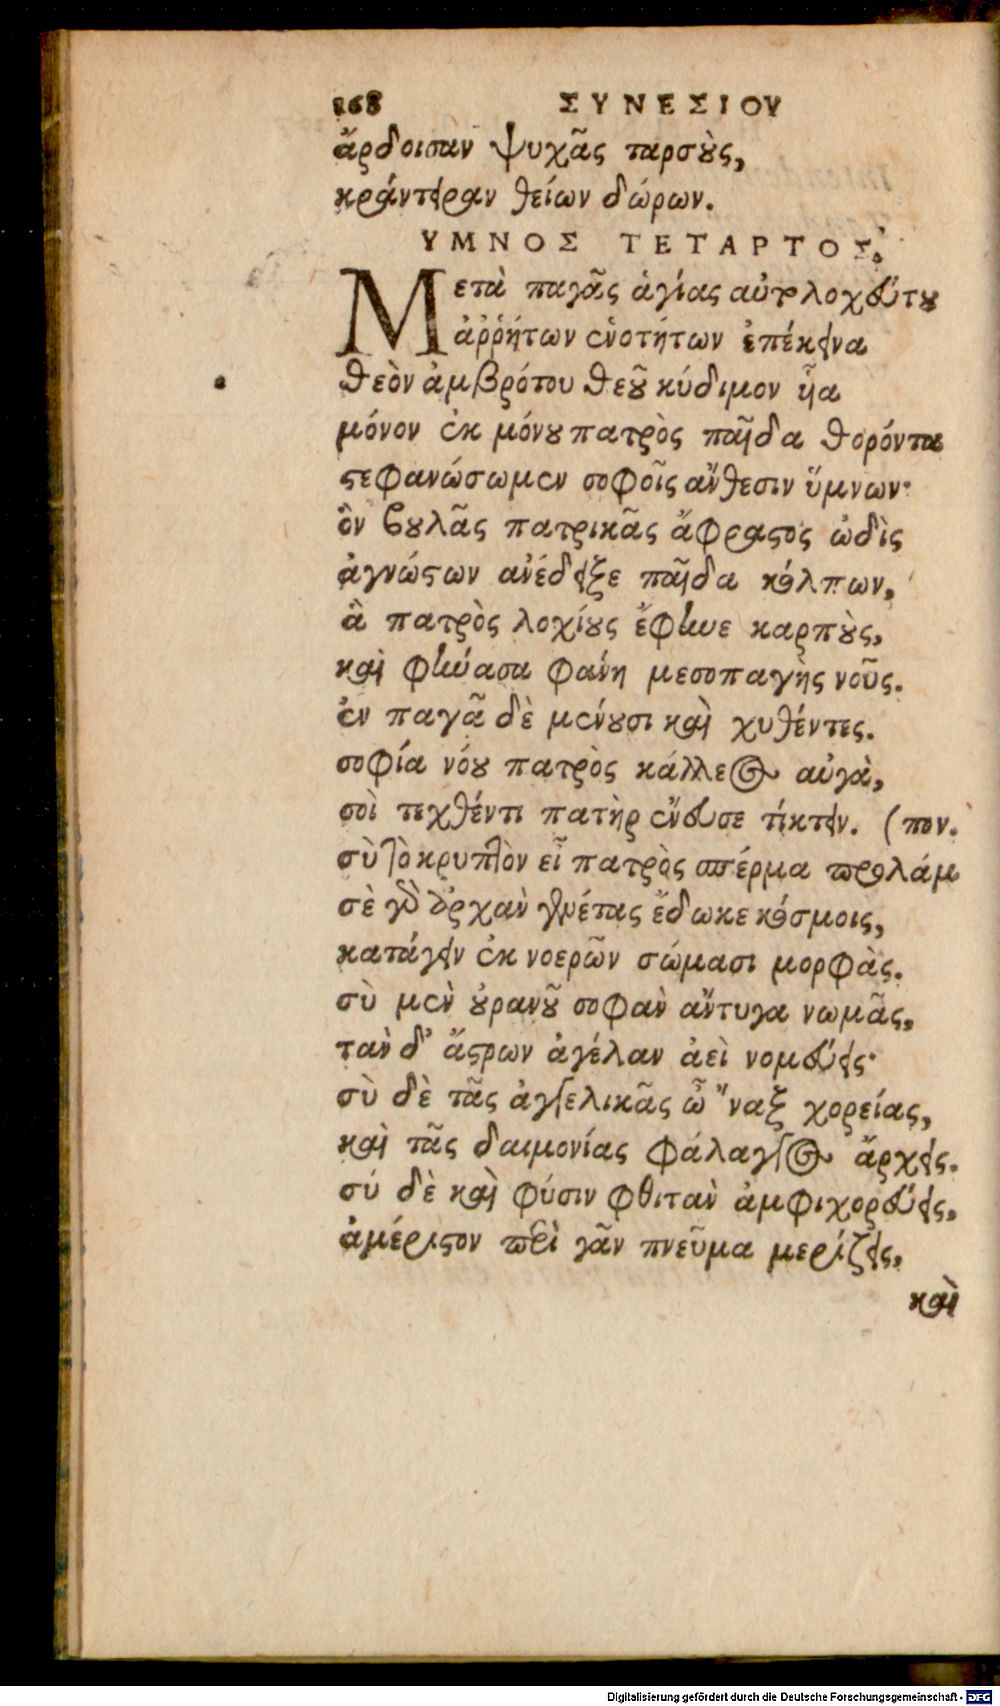 168 ΣΥΝΕΣΙΟΥ
ἄρδοισαν ψυχᾶς ταρσοὺς,
κράντειραν θείων δώρων.
ΥΜΝΟΣ ΤΕΤΑΡΤΟΣ.
Μετὰ παγᾶς ἁγίας αὐτολοχεύτου
ἀῤῥήτων ἑνοτήτων ἐπέκεινα
θεὸν ἀμβρότου θεοῦ κύδιμον ἧα
μόνον ἐκ μόνου πατρὸς παῖδα θορόντα
στεφανώσωμεν σοφοῖς ἄνθεσιν ὕμνων·
ὃν βουλᾶς πατρικᾶς ἄφραστος ὠδὶς
ἀγνώστων ἀνέδειξε παῖδα κόλπων,
ἃ πατρὸς λοχίους ἔφηνε καρποὺς,
καὶ φήνασα φάνη μεσοπαγὴς νοῦς.
ἐν παγᾶ δὲ μένουσι καὶ χυθέντες.
σοφία νόου πατρὸς κάλλεος αὐγὰ,
σοὶ τεχθέντι πατὴρ ἔνευσε τίκτειν. (πον.
σὺ τὸ κρυπτὸν εἶ πατρὸς σπέρμα προλάμ
σὲ γὰρ ἀρχὰν γενέτας ἔδωκε κόσμοις,
κατάγειν ἐκ νοερῶν σώμασι μορφὰς.
σὺ μὲν οὐρανοῦ σοφὰν ἄντυγα νωμᾶς,
τὰν δ' ἄστρων ἀγέλαν ἀεὶ νομεύεις·
σὺ δὲ τᾶς ἀγγελικᾶς ὦ ἄναξ χορείας,
καὶ τᾶς δαιμονίας φάλαγγος ἄρχεις.
σύ δὲ καὶ φύσιν φθιτὰν ἀμφιχορεύεις,
ἀμέριστον περὶ γᾶν πνεῦμα μερίζεις,
καὶ
Digitalisierung gefördert durch die Deutsche Forschungsgemeinschaft - DFG